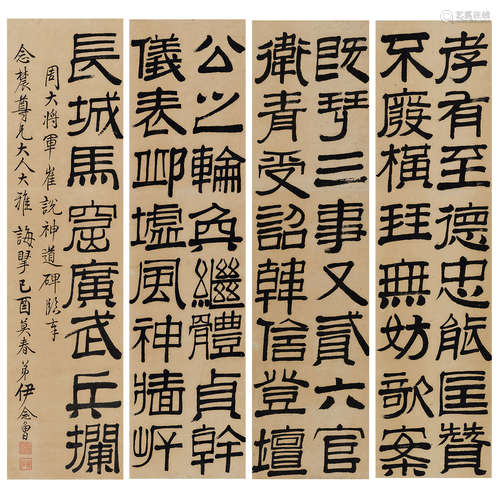 孝有至德忠能匡贊
不廢橫珪無妨歌案
既孯三事又貳六官
衛青受詔韓信登壇
公之輪奐繼體貞幹
儀表邱墟風神牆岸
長城馬窟廣武兵欄
周大將軍崔說神道碑頌辛
念農尊兄大人大雅 誨擘己酉莫春弟伊念曾